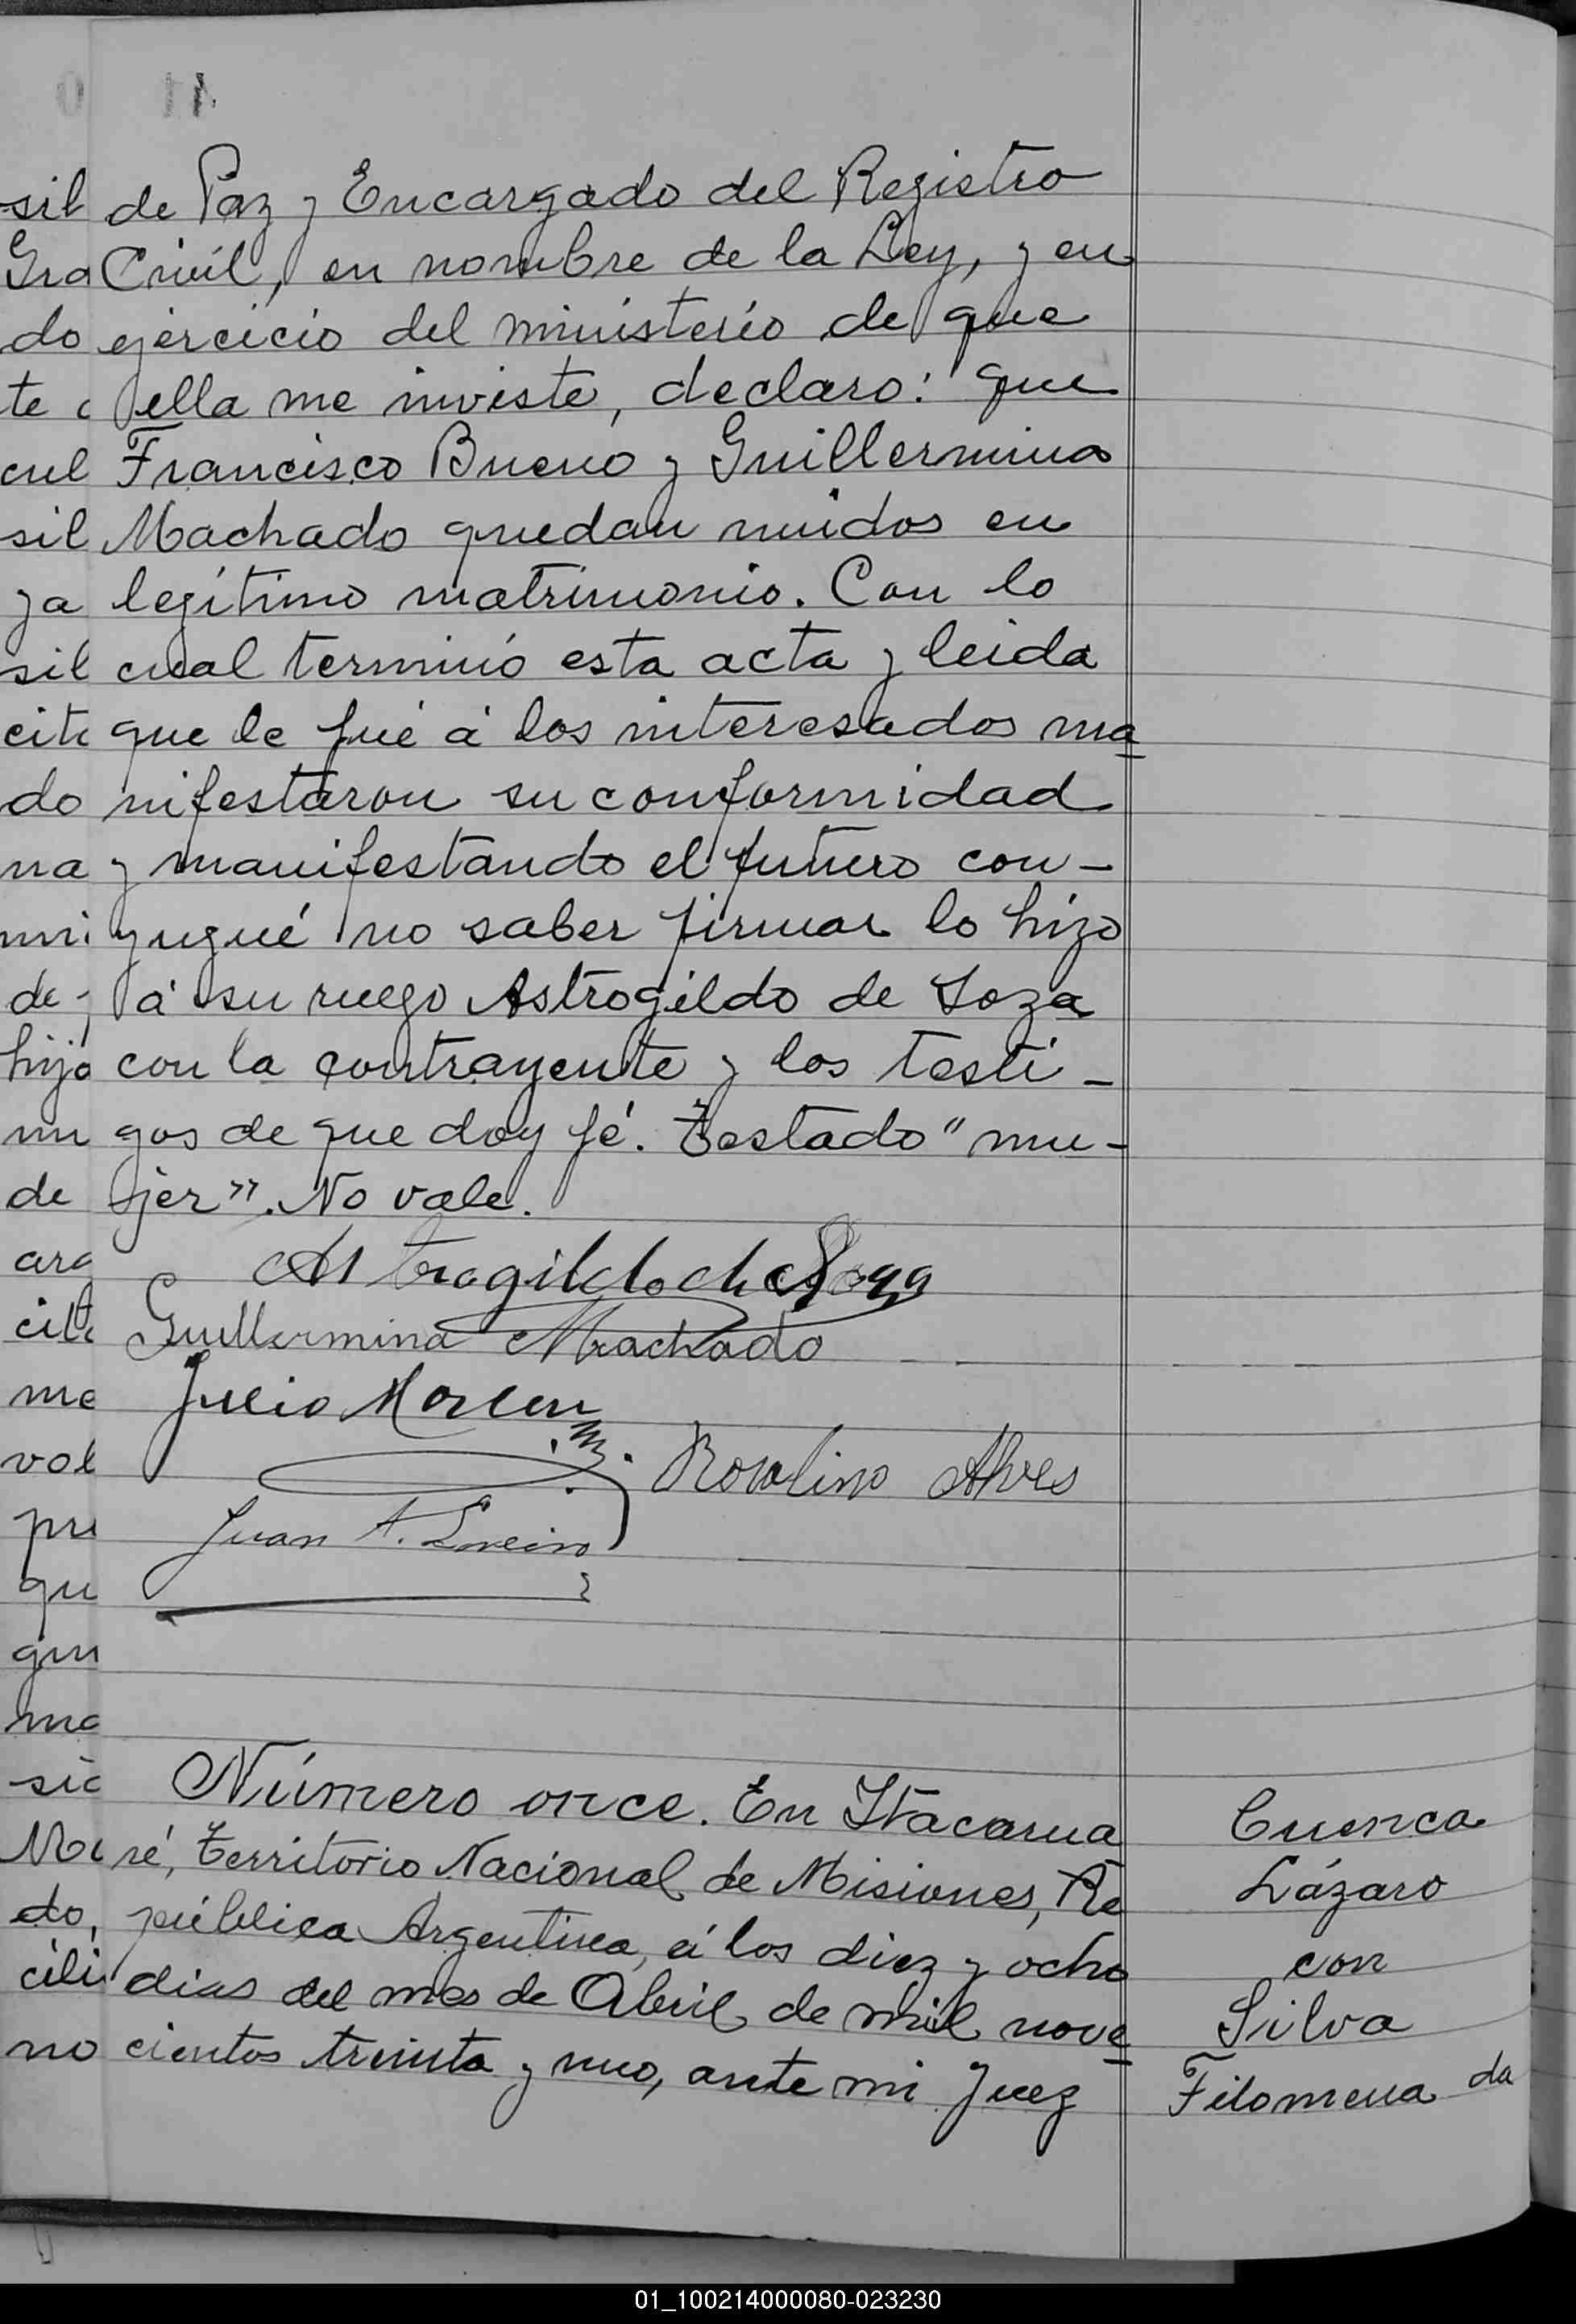 de Paz y Encargado del Registro
Civil, en nombre de la Ley, y en
ejercicio del ministerio de que
ella me inviste, declaro: que
Francisco Bueno y Guillermina
Machado quedan unidos en
legítimo matrimonio. Con lo
cual terminó esta acta y leida
que le fué á los interesados ma
nifestaron su conformidad
y manifestando el futuro con-
yugué no saber firmar lo hizo
á su ruego Astrogildo de Soza
con la contrayente y los testi-
gos de que doy fé. Testado "mu-
jer". No vale.
Astrogildo de Soza
Guillermina Machado
Julio
Alves
Juan A.
Número once. En Itacarua
ré, Territorio Nacional de Misiones, Re
pública Argentina, á los diez y ocho
dias del mes de Abril de mil nove
cientos treinta y uno, ante mi Juez
Cuenca
Lázaro
con
Silva
Filomena da
sil
Gra
do
te
cul
sil
ya
sil
cite
do
na
mi
de
hijo
un
de
arg
me
vol
pre
qu
do,
cili
no
01_100214000080-023230